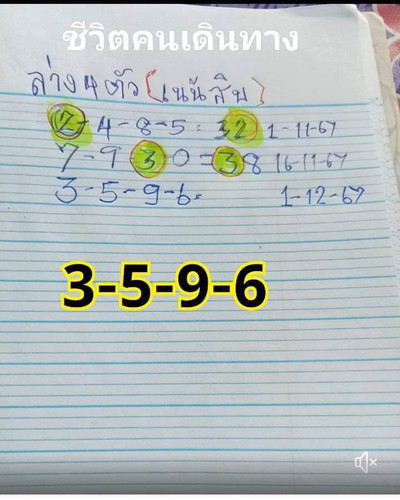 ชีวิตคนเดินทาง
ล่าง 4 ตัว (เน้นสิบ)
2-4-8-5 = 32 1-11-67
7-9 3 0 = 38 16-11-67
3-5-9-6 = 1-12-67
3-5-9-6